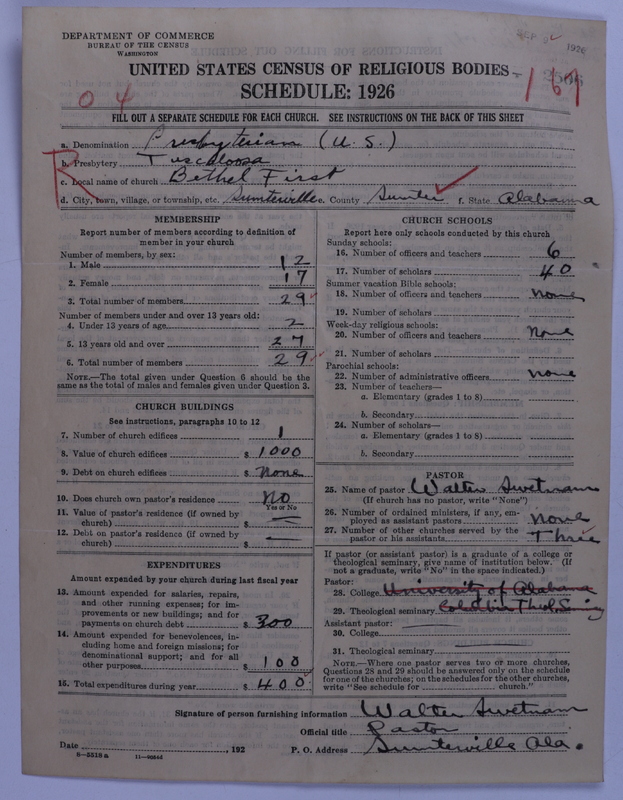 DEPARTMENT OF COMMERCE
BUREAU OF THE CENSUS
WASHINGTON
1926
UNITED STATES CENSUS OF RELIGIOUS BODIES
SCHEDULE: 1926
0 4
161
FILL OUT A SEPARATE SCHEDULE FOR EACH CHURCH. SEE INSTRUCTIONS ON THE BACK OF THIS SHEET
a. Denomination Presbyterian (U.S.)
b. Presbytery Tuscaloosa
c. Local name of church Bethel First
d. City, town, village, or township, etc. Sumterville e. County Sumter f. State Alabama
MEMBERSHIP
Report number of members according to definition of
member in your church
Number of members, by sex:
1. Male 12
2. Female 17
3. Total number of members 29
Number of members under and over 13 years old:
4. Under 13 years of age 2
5. 13 years old and over 27
6. Total number of members 29
NOTE.—The total given under Question 6 should be the
same as the total of males and females given under Question 3.
CHURCH BUILDINGS
See instructions, paragraphs 10 to 12
7. Number of church edifices 1
8. Value of church edifices $ 1000
9. Debt on church edifices $ None
10. Does church own pastor's residence No
Yes or No
11. Value of pastor's residence (if owned by
church) $
12. Debt on pastor's residence (if owned by
church) $
EXPENDITURES
Amount expended by your church during last fiscal year
13. Amount expended for salaries, repairs,
and other running expenses; for im-
provements or new buildings; and for
payments on church debt $ 300
14. Amount expended for benevolences, in-
cluding home and foreign missions; for
denominational support; and for all
other purposes $ 100
15. Total expenditures during year $ 400
CHURCH SCHOOLS
Report here only schools conducted by this church
Sunday schools:
16. Number of officers and teachers 6
17. Number of scholars 40
Summer vacation Bible schools:
18. Number of officers and teachers None
19. Number of scholars
Week-day religious schools:
20. Number of officers and teachers None
21. Number of scholars
Parochial schools:
22. Number of administrative officers None
23. Number of teachers—
a. Elementary (grades 1 to 8)
b. Secondary
24. Number of scholars—
a. Elementary (grades 1 to 8)
b. Secondary
PASTOR
25. Name of pastor Walter Swetnam
(If church has no pastor, write "None")
26. Number of ordained ministers, if any, em-
ployed as assistant pastors None
27. Number of other churches served by the
pastor or his assistants Three
If pastor (or assistant pastor) is a graduate of a college or
theological seminary, give name of institution below. (If
not a graduate, write "No" in the space indicated.)
Pastor:
28. College University of Alabama
29. Theological seminary Columbia Theol. Seminary
Assistant pastor:
30. College
31. Theological seminary
NOTE.—Where one pastor serves two or more churches,
Questions 28 and 29 should be answered only on the schedule
for one of the churches; on the schedules for the other churches,
write "See schedule for church."
Signature of person furnishing information Walter Swetnam
Official title Pastor
Date , 192 P. O. Address Sumterville Ala.
8—5518 a